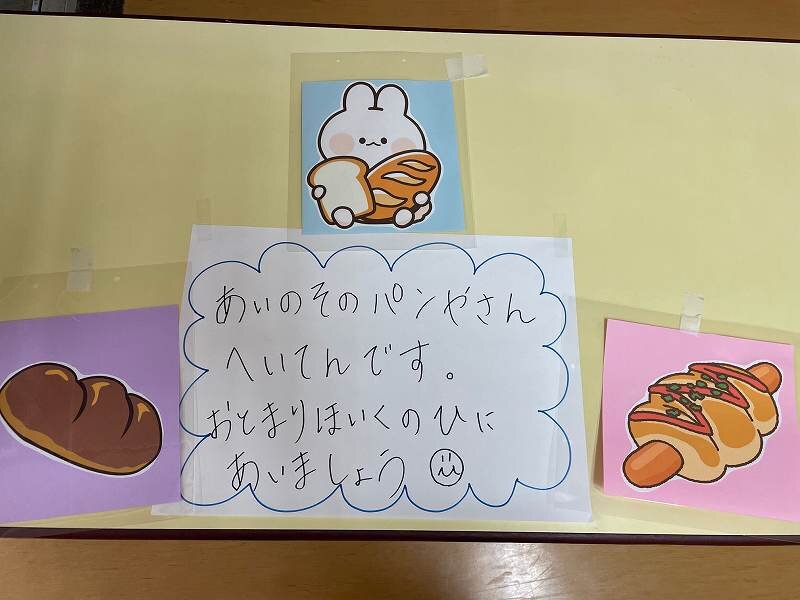 あいのそのパンやさん
へいてんです。
おとまりほいくのひに
あいましょう